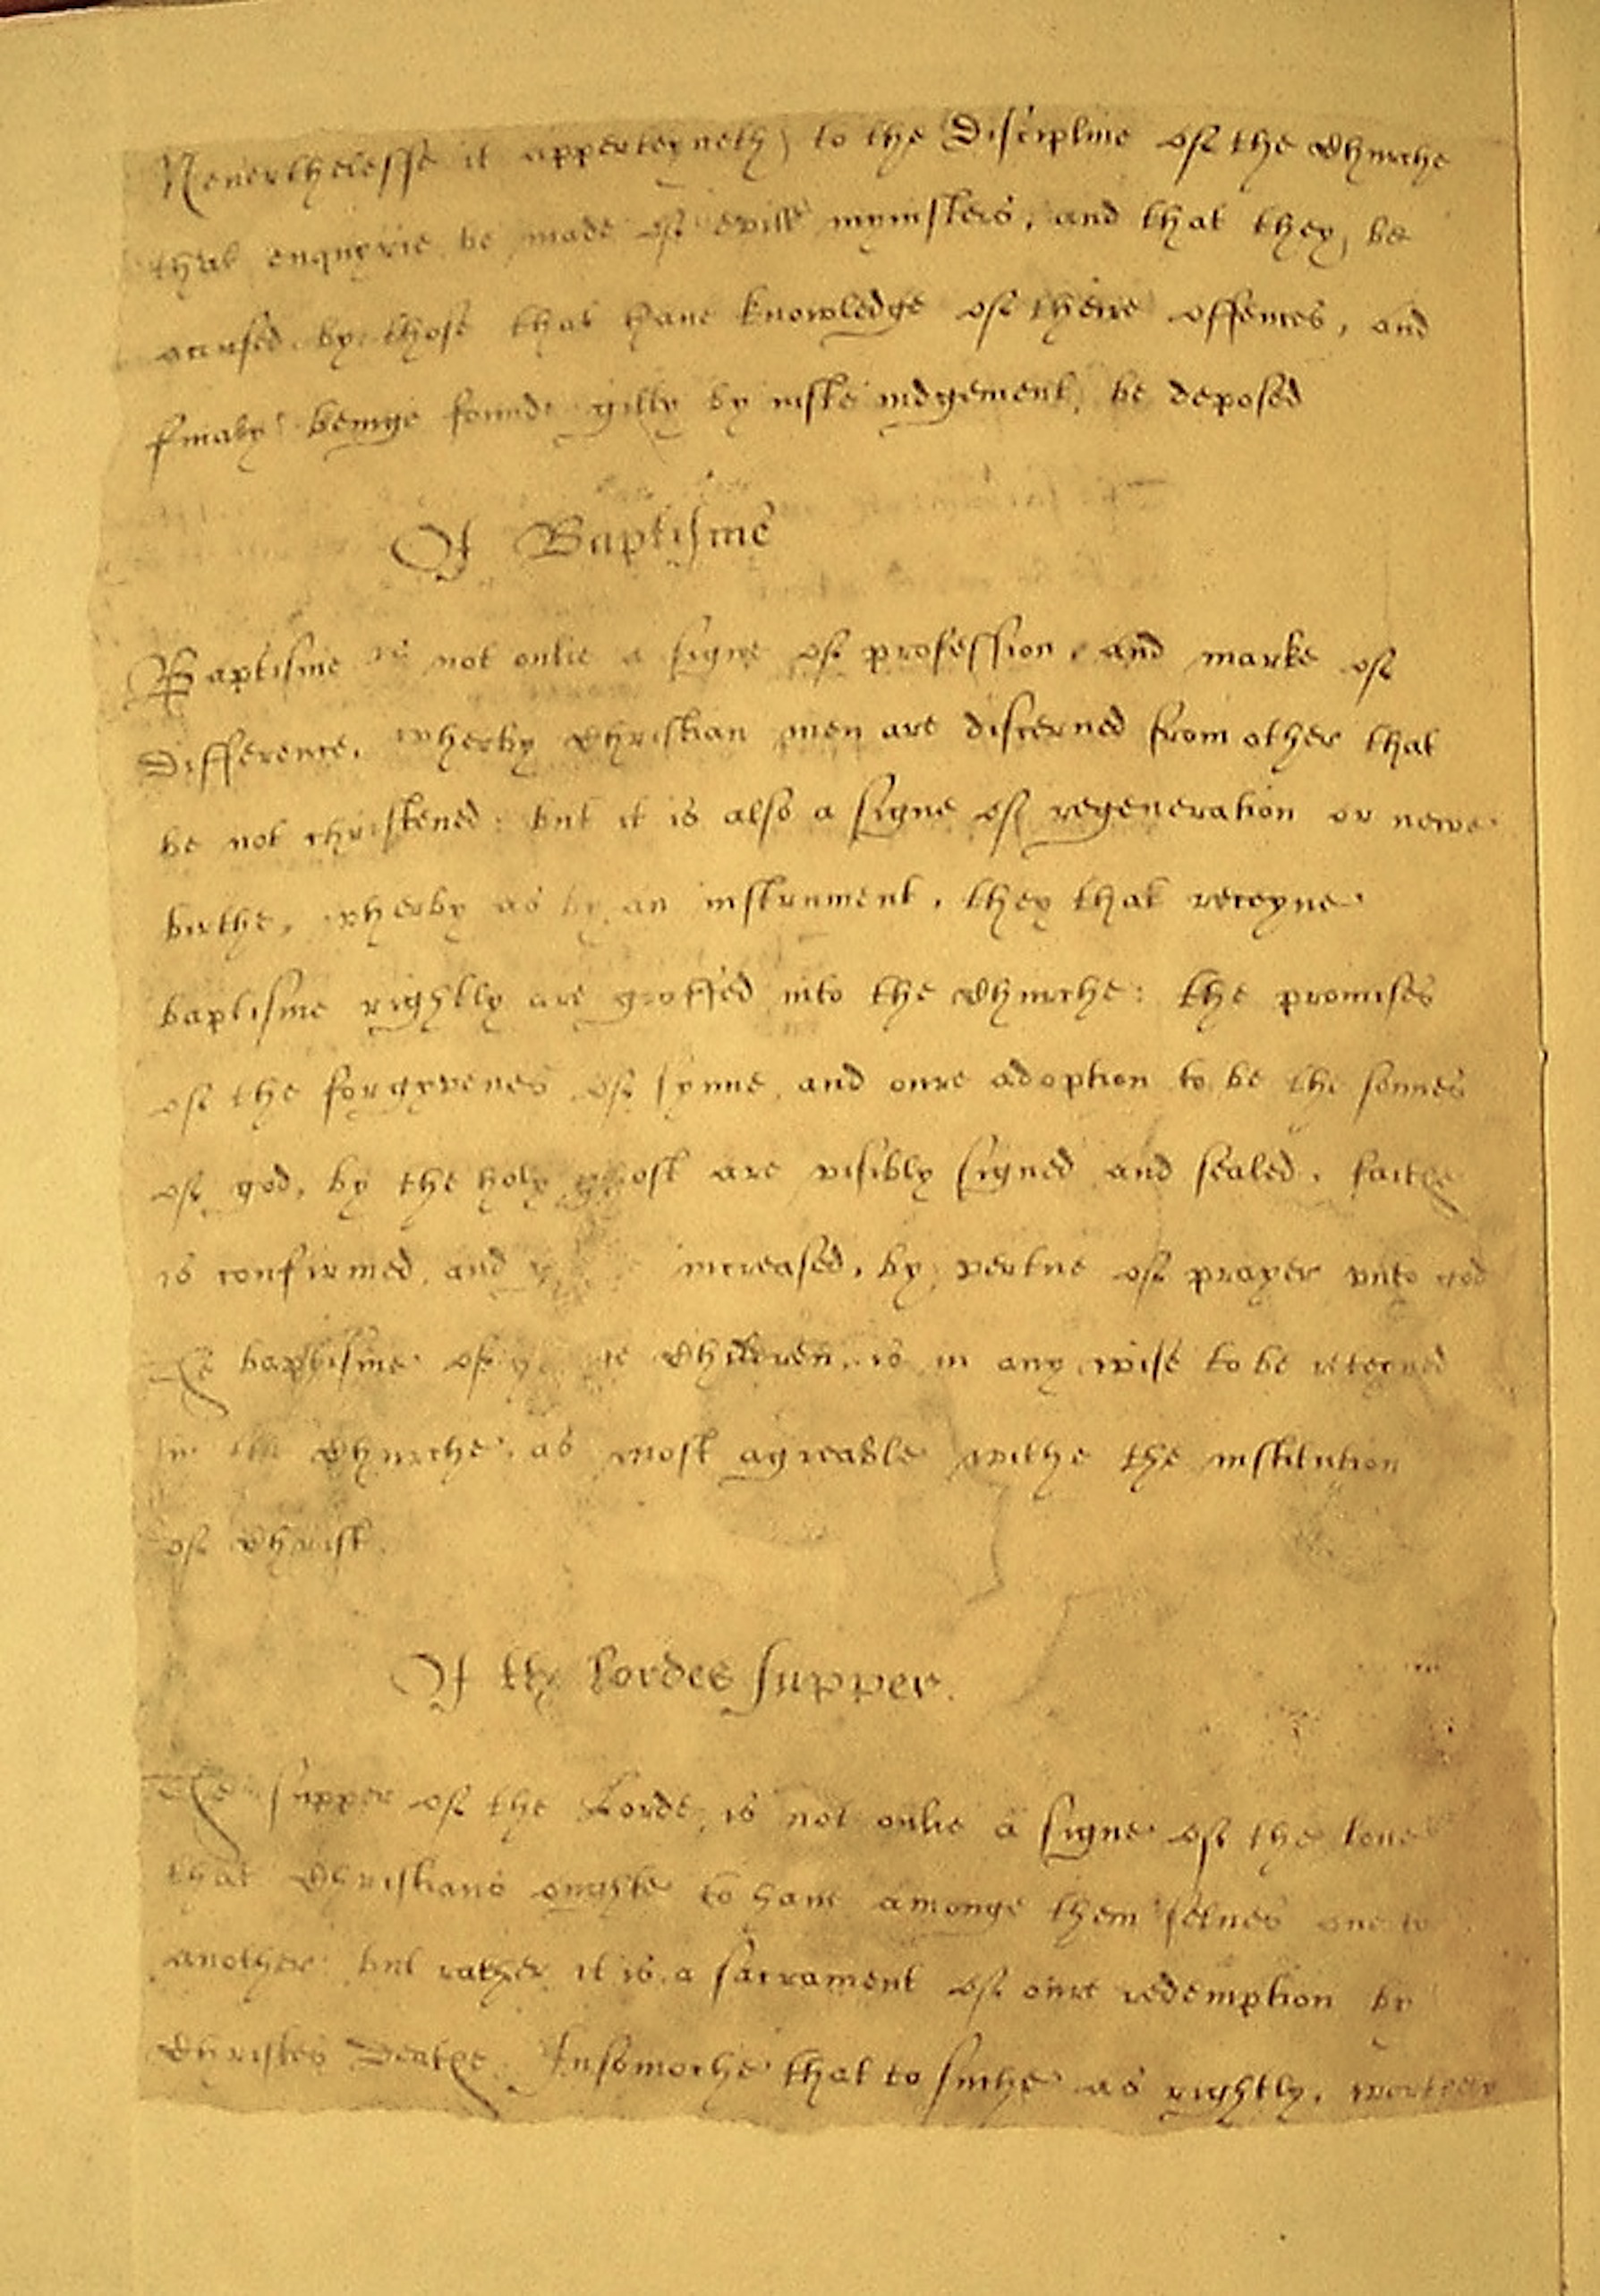 Neuerthelesse it apperteyneth to the Discipline of the Churche
that enquyrie be made of evill mynisters, and that they be
accused by those that haue knowledge of theire offences, and
finaly beinge founde gilty by iuste iudgement, be deposed
Of Baptisme
Baptisme is not onlie a signe of profession, and marke of
Difference, wherby Christian men are discerned from other that
be not christened: but it is also a signe of regeneration or newe
birthe, wherby as by an instrument, they that receyue
baptisme rightly are graffed into the Churche: the promises
of the forgyvenes of synne, and oure adoption to be the sonnes
of god, by the holy ghost are visibly signed and sealed, faithe
is confirmed, and increased, by vertue of prayer vnto god
The baptisme of children, is in any wise to be reteyned
in the Churche, as most agreable withe the institution
of Christ.
Of the Lordes supper.
The supper of the Lorde, is not onlie a signe of the loue
that Christians oughte to haue amonge them selues one to
another: but rather it is a sacrament of oure redemption by
Christes Deathe. Insomoche that to suche as rightly, worthely